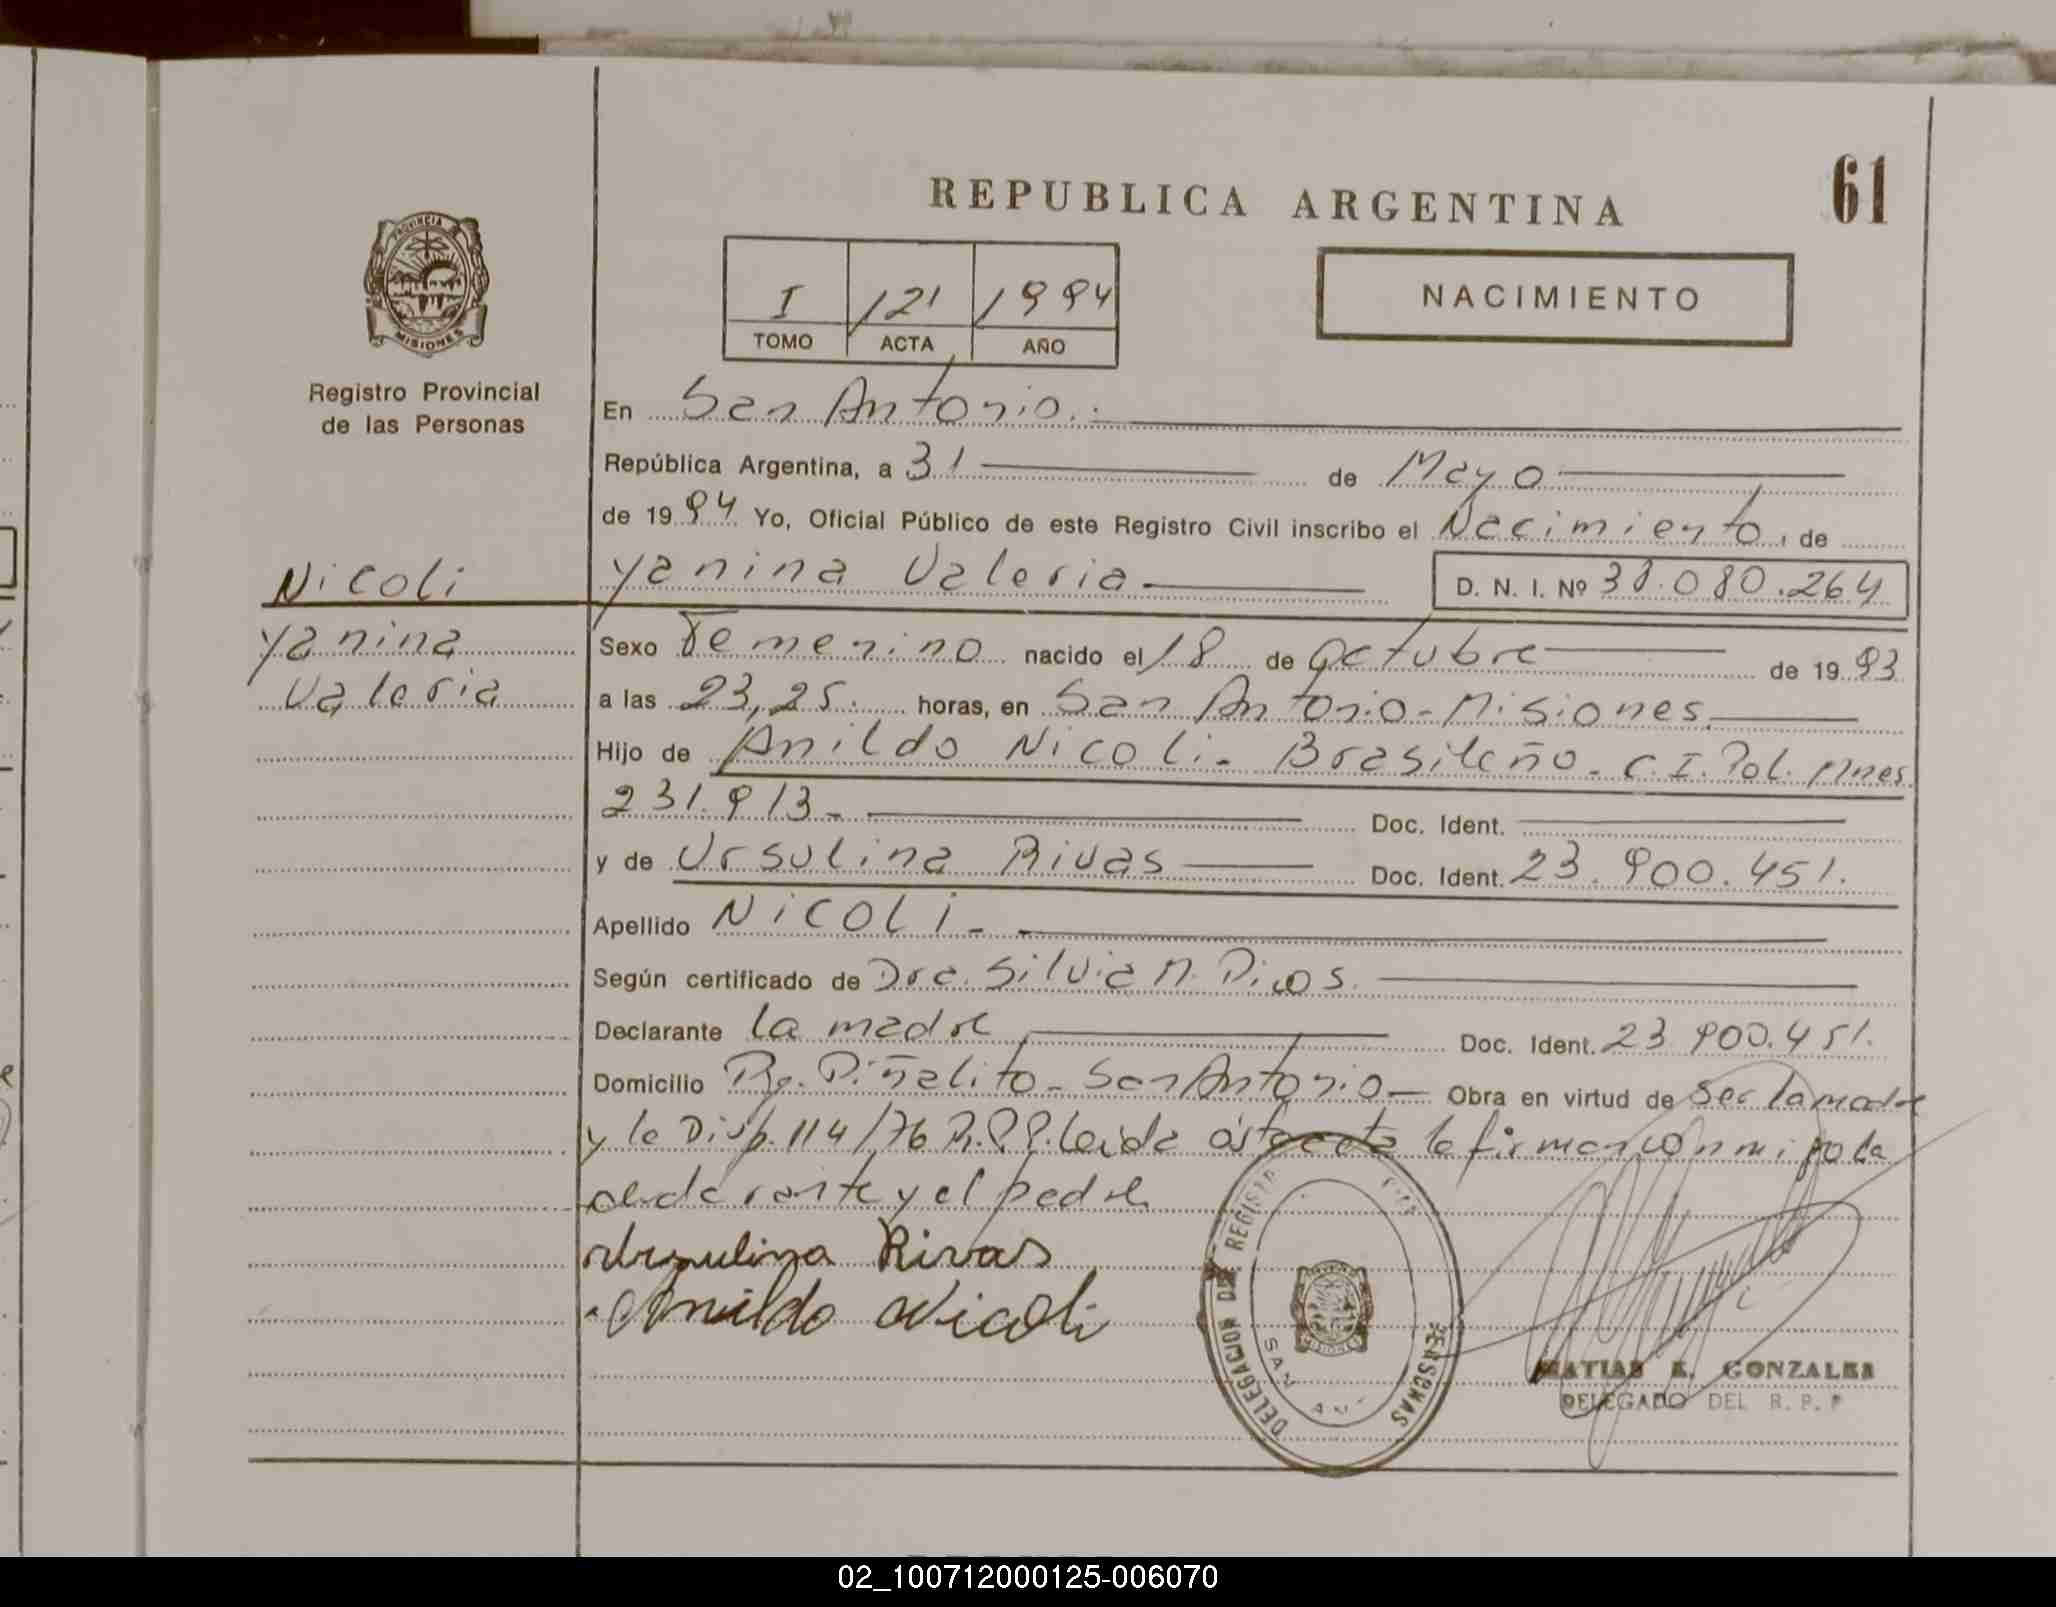 REPUBLICA ARGENTINA
61
PROVINCIA
MISIONES
Registro Provincial
de las Personas
I 121 1994
TOMO ACTA AÑO
NACIMIENTO
En San Antonio.
República Argentina, a 31 de Mayo
de 1994 Yo, Oficial Público de este Registro Civil inscribo el Nacimiento, de
Nicoli
Yanina Valeria D. N. I. Nº 38.080.264
Yanina
Valeria
Sexo Femenino nacido el 18 de Octubre de 1993
a las 23,25. horas, en San Antonio - Misiones
Hijo de Anildo Nicoli - Brasileño - C.I. Pol. Mnes
231.913 - Doc. Ident.
y de Ursulina Rivas Doc. Ident. 23.900.451.
Apellido Nicoli -
Según certificado de Dra. Silvia M. Dicos.
Declarante la madre Doc. Ident. 23.900.451.
Domicilio Pje. Piñalito - San Antonio - Obra en virtud de ser la madre
y la Disp. 114/76 R.P.P. Leida ésta acta la firman conmigo la
declarante y el padre
Ursulina Rivas
Anildo Nicoli
DELEGACION DEL REGISTR PERSONAS
SAN ANT
MISIONES
MATIAS E. GONZALEZ
DELEGADO DEL R. P. P
02_100712000125-006070